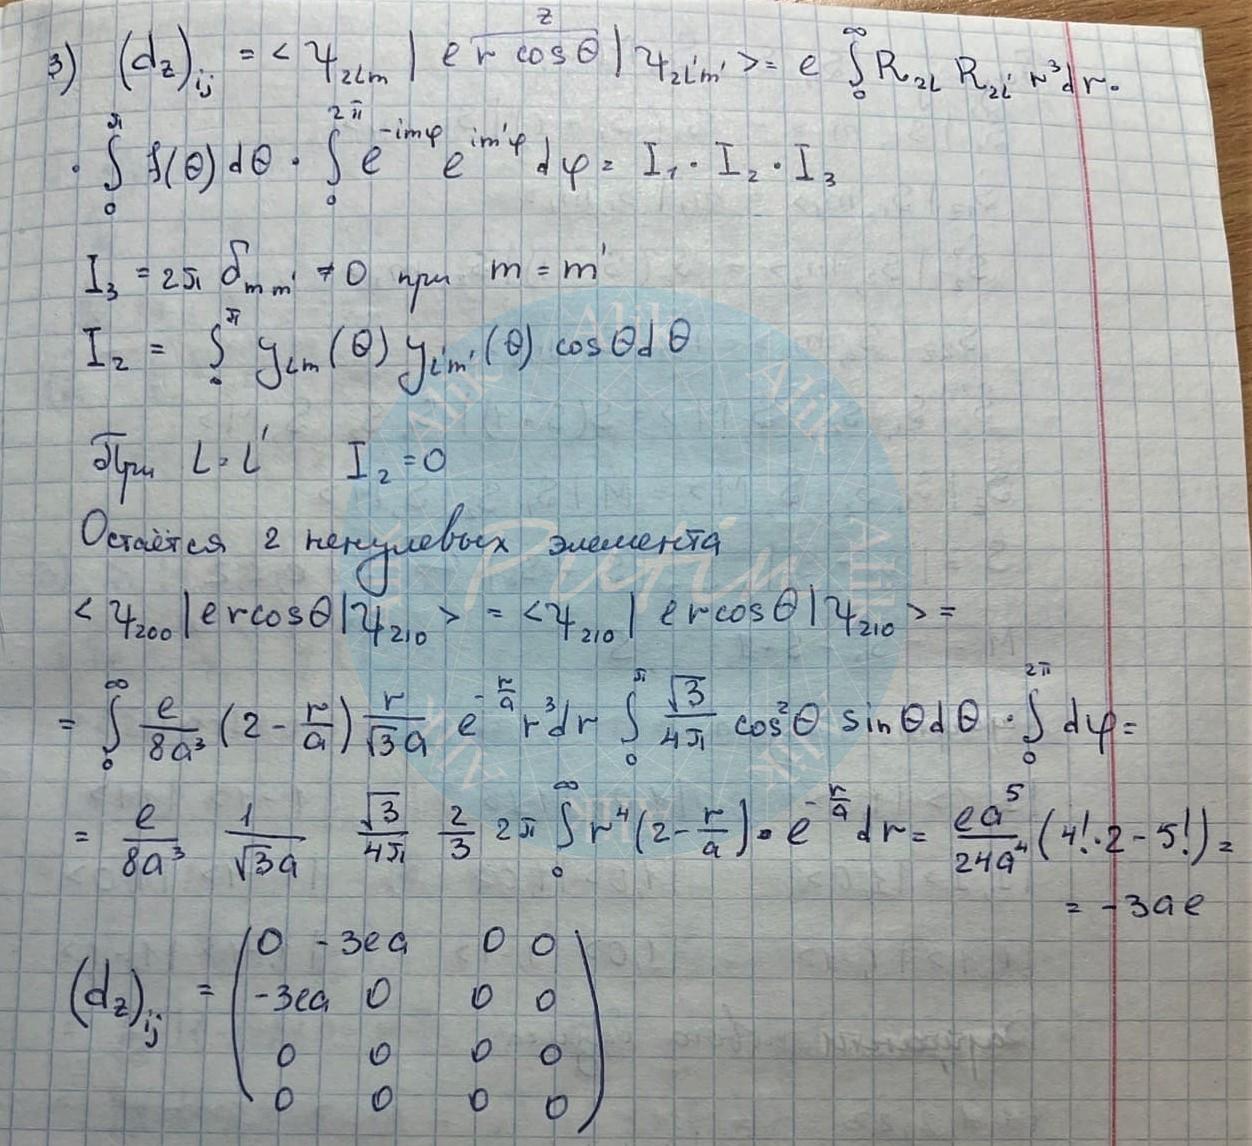 3) (d_z)_ij = <ψ_2Lm | e r cosθ | ψ_2L'm'> = e ∫_0^∞ R_2L R_2L' r^3 dr ·
z
· ∫_0^π f(θ) dθ · ∫_0^2π e^{-imφ} e^{im'φ} dφ = I_1 · I_2 · I_3
I_3 = 2π δ_mm' ≠ 0 при m = m'
I_2 = ∫_0^π y_Lm (θ) y_L'm' (θ) cosθ dθ
При L = L' I_2 = 0
Остаётся 2 ненулевых элемента
<ψ_200 | e r cosθ | ψ_210> = <ψ_210 | e r cosθ | ψ_210> =
= ∫_0^∞ e/8a^3 (2 - r/a) r/√3a e^{-r/a} r^3 dr ∫_0^π √3/4π cos^2θ sinθ dθ · ∫_0^2π dφ =
= e/8a^3 1/√3a √3/4π 2/3 2π ∫_0^∞ r^4 (2 - r/a) · e^{-r/a} dr = ea^5/24a^4 (4! · 2 - 5!) =
= -3ae
(d_z)_ij = ( 0 -3ea 0 0
-3ea 0 0 0
0 0 0 0
0 0 0 0 )
Alik
Putin